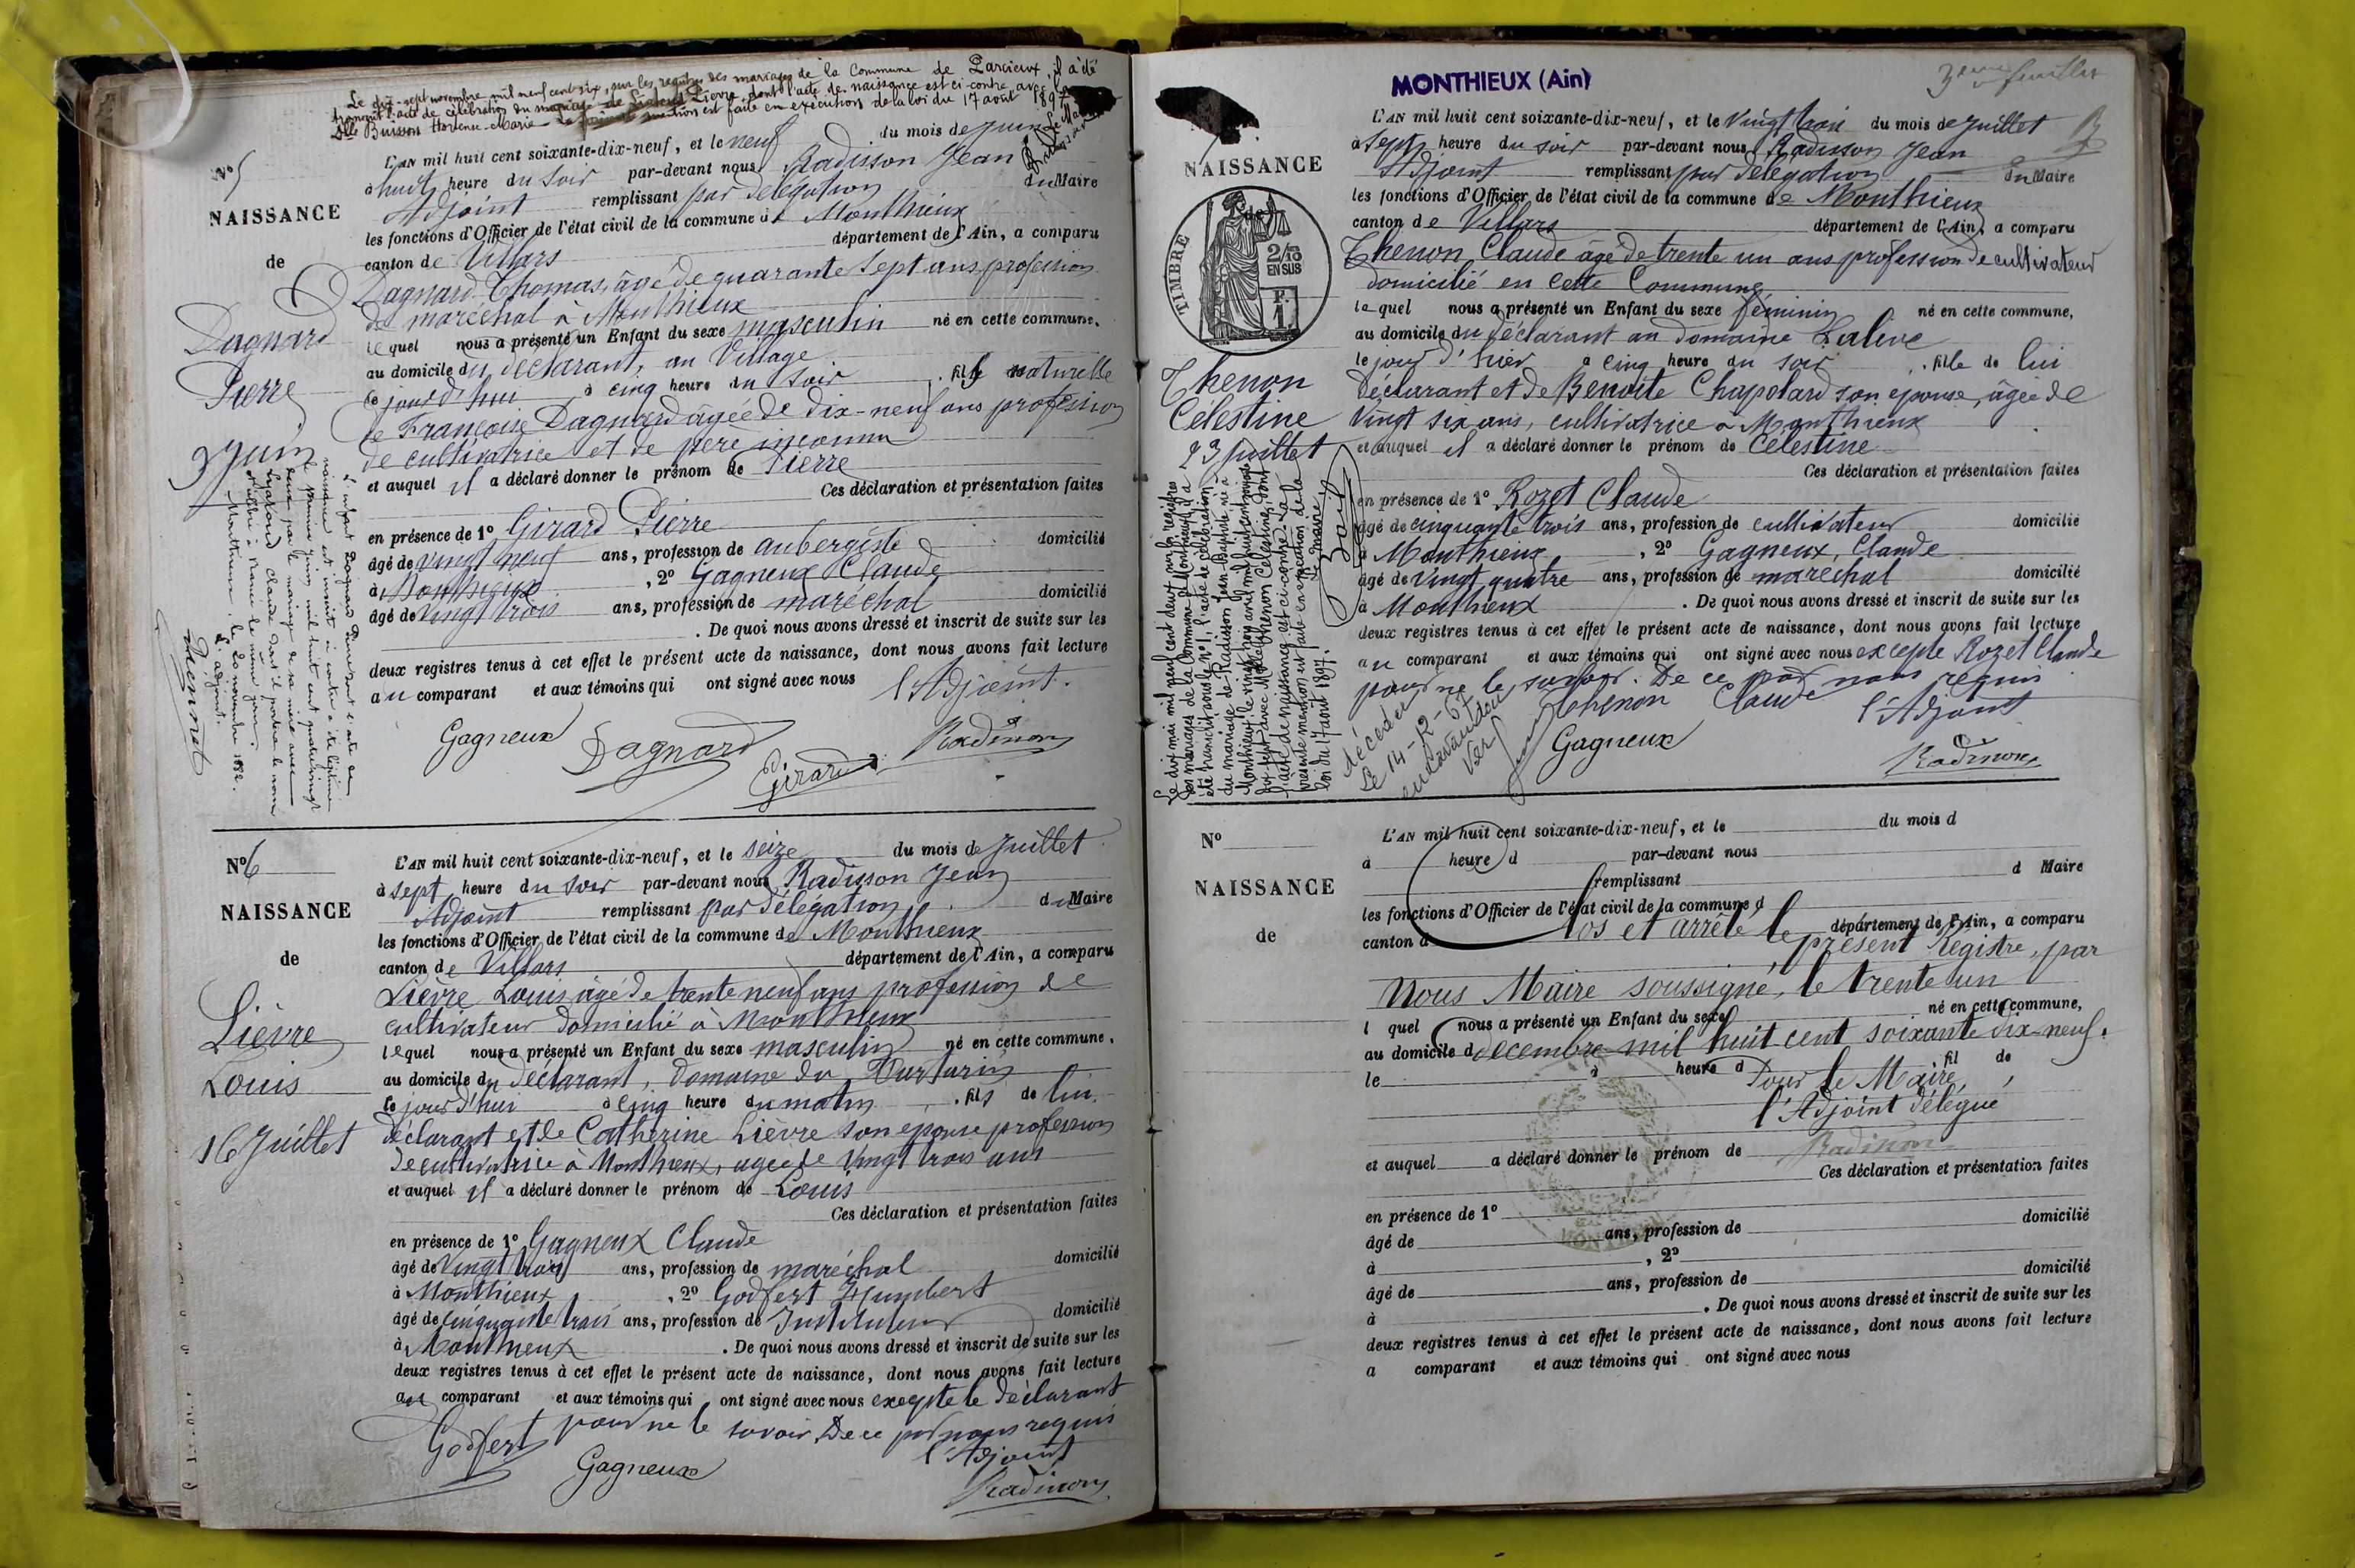 Le dix-sept novembre mil neuf cent six, sur les registres des mariages de la Commune de Parcieux, il a été
transcrit l'acte de célébration du mariage de Lièvre, dont l'acte de naissance est ci-contre, avec
Buisson Hortense-Marie La présente mention est faite en exécution de la loi du 17 août 1897
Le Maire
N° 5
NAISSANCE
de
Dagnard
Pierre
9 Juin
L'AN mil huit cent soixante-dix-neuf, et le neuf du mois de Juin
à huit heure du soir par-devant nous Radisson Jean
Adjoint remplissant par délégation du Maire
les fonctions d'Officier de l'état civil de la commune de Monthieux
canton de Villars département de l'Ain, a comparu
Dagnard Thomas, âgé de quarante sept ans profession
de maréchal à Monthieux
lequel nous a présenté un Enfant du sexe masculin né en cette commune,
au domicile du déclarant, au Village
le jour d'hui à cinq heure du soir, fils naturelle
de Françoise Dagnard âgée de dix-neuf ans profession
de cultivatrice et de père inconnu
et auquel il a déclaré donner le prénom de Pierre
Ces déclaration et présentation faites
en présence de 1° Girard Pierre
âgé de vingt neuf ans, profession de aubergiste domicilié
à Monthieux, 2° Gagneux Claude
âgé de vingt trois ans, profession de maréchal domicilié
. De quoi nous avons dressé et inscrit de suite sur les
deux registres tenus à cet effet le présent acte de naissance, dont nous avons fait lecture
au comparant et aux témoins qui ont signé avec nous l'Adjoint.
Gagneux Dagnard Girard Radisson
L'enfant Dagnard Pierre dont l'acte de
naissance est inscrit ci-contre a été légitimé
le premier juin mil huit cent quatre vingt
deux par le mariage de sa mère avec
Claude dont il portera le nom
célébré à le même jour.
Monthieux, le 20 novembre 1882.
L'adjoint.
N° 6
NAISSANCE
de
Lièvre
Louis
16 Juillet
L'AN mil huit cent soixante-dix-neuf, et le seize du mois de Juillet
à sept heure du soir par-devant nous Radisson Jean
Adjoint remplissant par délégation du Maire
les fonctions d'Officier de l'état civil de la commune de Monthieux
canton de Villars département de l'Ain, a comparu
Lièvre Louis âgé de trente neuf ans profession de
cultivateur domicilié à Monthieux
lequel nous a présenté un Enfant du sexe masculin né en cette commune,
au domicile du déclarant, Domaine du
le jour d'hui à cinq heure du matin, fils de lui
déclarant et de Catherine Lièvre son épouse profession
de cultivatrice à Monthieux, agée de vingt trois ans
et auquel il a déclaré donner le prénom de Louis
Ces déclaration et présentation faites
en présence de 1° Gagneux Claude
âgé de vingt trois ans, profession de maréchal domicilié
à Monthieux, 2° Godfert Humbert
âgé de cinquante trois ans, profession de Instituteur domicilié
à Monthieux. De quoi nous avons dressé et inscrit de suite sur les
deux registres tenus à cet effet le présent acte de naissance, dont nous avons fait lecture
au comparant et aux témoins qui ont signé avec nous excepté le déclarant
pour ne le savoir. De ce par nous requis
Godfert Gagneux l'Adjoint
Radisson
MONTHIEUX (Ain)
3eme feuillet
NAISSANCE
de
TIMBRE
2/10
EN SUS
Thenon
Celestine
23 Juillet
L'AN mil huit cent soixante-dix-neuf, et le Vingt trois du mois de Juillet
à sept heure du soir par-devant nous Radisson Jean
Adjoint remplissant par délégation du Maire
les fonctions d'Officier de l'état civil de la commune de Monthieux
canton de Villars département de l'Ain, a comparu
Thenon Claude âgé de trente un ans profession de cultivateur
domicilié en cette Commune
lequel nous a présenté un Enfant du sexe féminin né en cette commune,
au domicile du déclarant au domaine Lalive
le jour d'hier à cinq heure du soir, fille de lui
déclarant et de Benoite Chapolard son epouse, âgée de
vingt six ans, cultivatrice à Monthieux
et auquel il a déclaré donner le prénom de Celestine
Ces déclaration et présentation faites
en présence de 1° Rozet Claude
âgé de cinquante trois ans, profession de cultivateur domicilié
à Monthieux, 2° Gagneux, Claude
âgé de vingt quatre ans, profession de maréchal domicilié
à Monthieux. De quoi nous avons dressé et inscrit de suite sur les
deux registres tenus à cet effet le présent acte de naissance, dont nous avons fait lecture
au comparant et aux témoins qui ont signé avec nous excepté Rozet Claude
pour ne le savoir. De ce par nous requis
Thenon Claude l'Adjoint
Gagneux Radisson
Le dix mai mil neuf cent deux, sur les registres
des mariages de la Commune de Monthieux, il a
été transcrit sous le n° 1, l'acte de célébration
du mariage de Radisson Jean-Baptiste né à
Monthieux le vingt neuf avril mil huit cent soixante
dix sept avec Melle Thenon Celestine, dont
l'acte de naissance est ci-contre. La
présente mention est faite en exécution de la
loi du 17 août 1897.
Le Maire
décédée
Le 14-12-67
Var
N°
NAISSANCE
de
L'AN mil huit cent soixante-dix-neuf, et le du mois d
à heure d par-devant nous
remplissant d Maire
les fonctions d'Officier de l'état civil de la commune d
canton d département de l'Ain, a comparu
Clos et arrêté le présent Registre, par
Nous Maire soussigné, le trente un
né en cette commune,
l quel nous a présenté un Enfant du sexe
au domicile d décembre mil huit cent soixante dix-neuf.
le à heure d fil de
Pour le Maire,
l'Adjoint délégué
Radisson
et auquel a déclaré donner le prénom de
Ces déclaration et présentation faites
en présence de 1°
âgé de ans, profession de domicilié
à , 2°
âgé de ans, profession de domicilié
à . De quoi nous avons dressé et inscrit de suite sur les
deux registres tenus à cet effet le présent acte de naissance, dont nous avons fait lecture
a comparant et aux témoins qui ont signé avec nous